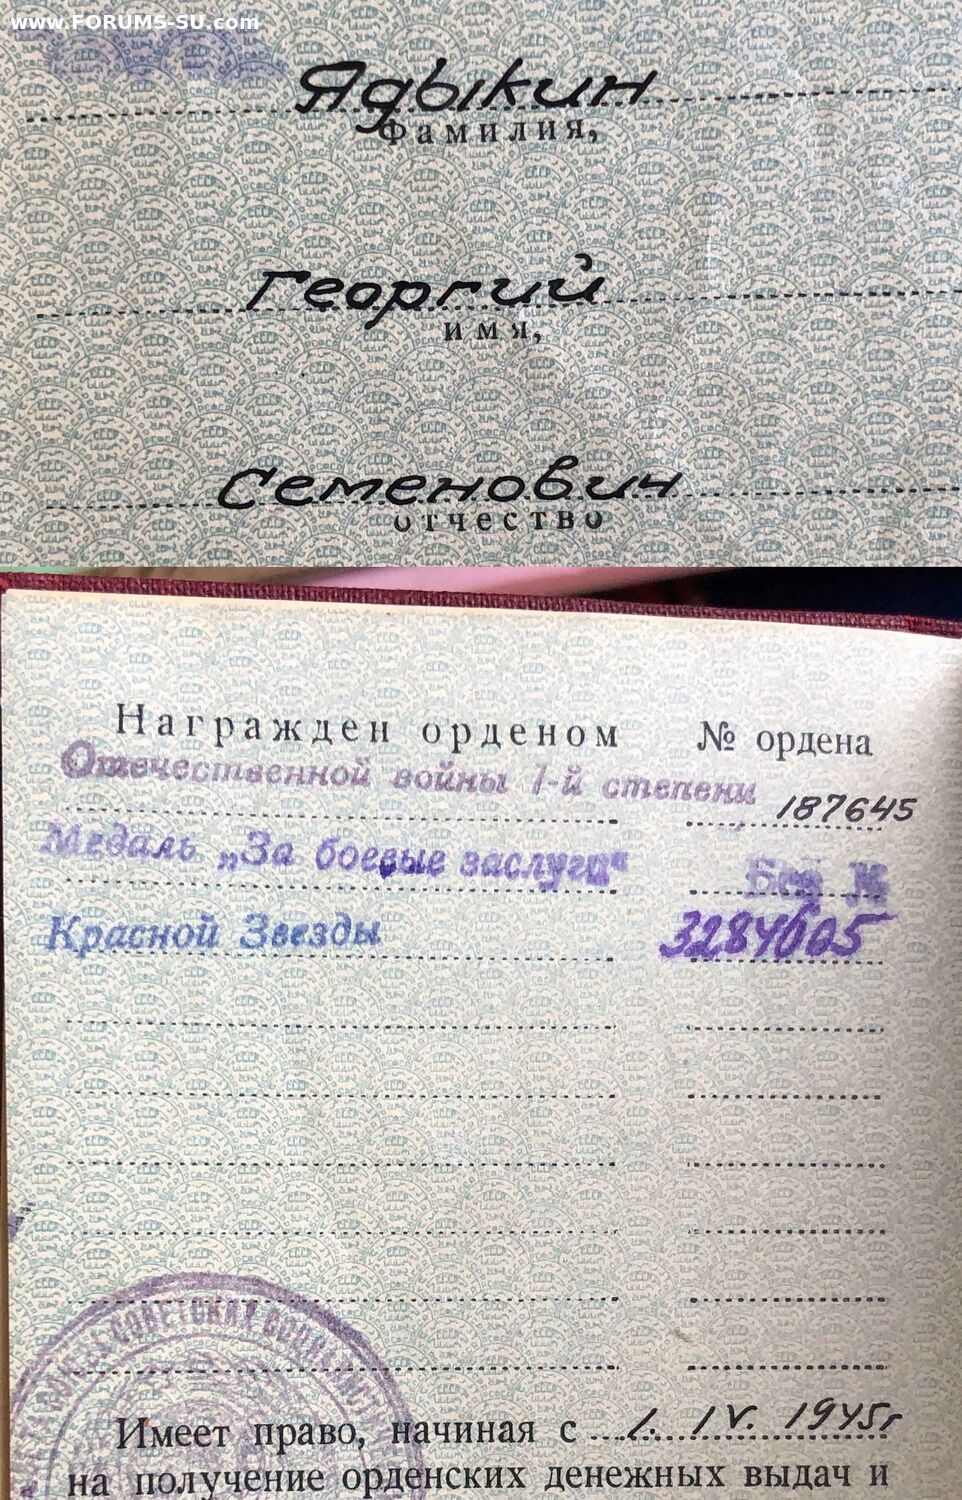 www.FORUMS-SU.com
Ядыкин
Фамилия,
Георгий
имя,
Семенович
отчество
Награжден орденом № ордена
Отечественной войны 1-й степени 187645
Медаль „За боевые заслуги“ Без №
Красной Звезды 3284605
СОВЕТСКАЯ
Имеет право, начиная с 1. IV. 1945г
на получение орденских денежных выдач и